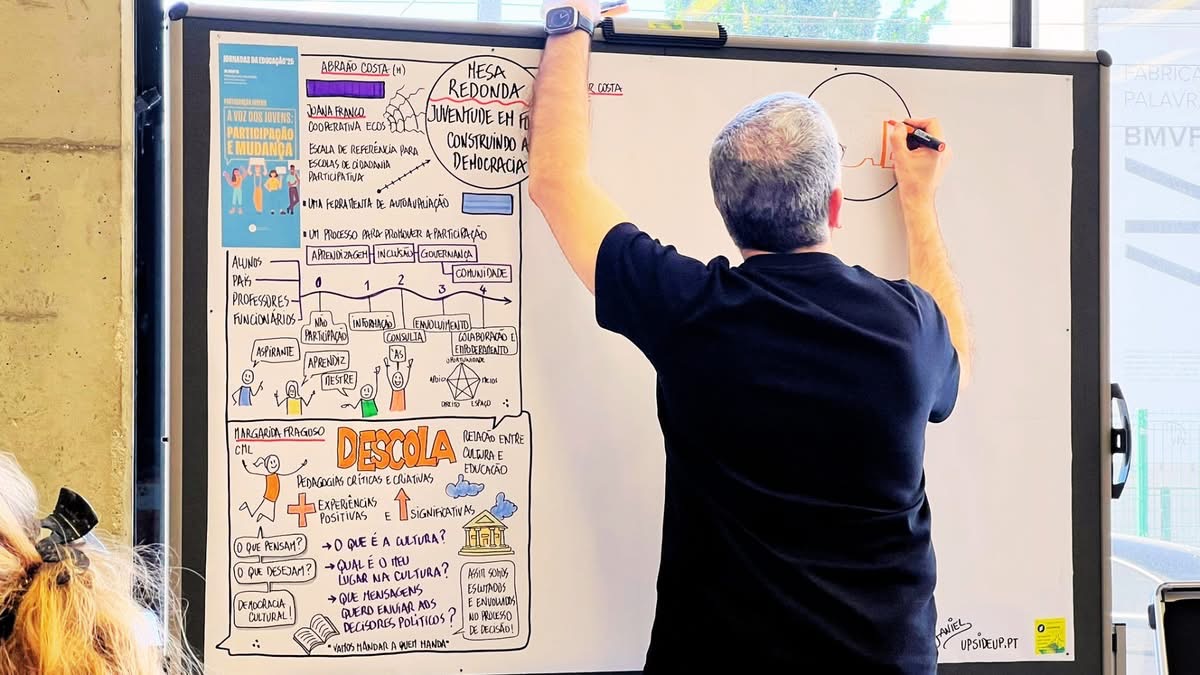 JORNADAS DA EDUCAÇÃO'25
A VOZ DOS JOVENS:
PARTICIPAÇÃO
E MUDANÇA
ABRAÃO COSTA (M)
JOANA FRANCO
COOPERATIVA ECOS
ESCALA DE REFERÊNCIA PARA
ESCOLAS DE CIDADANIA
PARTICIPATIVA
UMA FERRAMENTA DE AUTOAVALIAÇÃO
UM PROCESSO PARA PROMOVER A PARTICIPAÇÃO
APRENDIZAGEM INCLUSÃO GOVERNANÇA
COMUNIDADE
MESA
REDONDA
JUVENTUDE EM
CONSTRUINDO A
DEMOCRACIA
COSTA
ALUNOS
PAIS
PROFESSORES
FUNCIONÁRIOS
0 1 2 3 4
NÃO
PARTICIPAÇÃO
INFORMAÇÃO
CONSULTA
ENVOLVIMENTO
COLABORAÇÃO E
EMPODERAMENTO
ASPIRANTE
APRENDIZ
MESTRE
ÁS
OPORTUNIDADE
APOIO
MEIOS
DIREITO ESPAÇO
MARGARIDA FRAGOSO
CML
DESCOLA
RELAÇÃO ENTRE
CULTURA E
EDUCAÇÃO
PEDAGOGIAS CRÍTICAS E CRIATIVAS
+ EXPERIÊNCIAS
POSITIVAS E
SIGNIFICATIVAS
O QUE PENSAM?
O QUE DESEJAM?
DEMOCRACIA
CULTURAL!
→ O QUE É A CULTURA?
→ QUAL É O MEU
LUGAR NA CULTURA?
→ QUE MENSAGENS
QUERO ENVIAR AOS
DECISORES POLÍTICOS?
ASSIM SOMOS
ESCUTADOS
E ENVOLVIDOS
NO PROCESSO
DE DECISÃO!
"VAMOS MANDAR A QUEM MANDA"
DANIEL
UPSIDEUP.PT
PALAVR